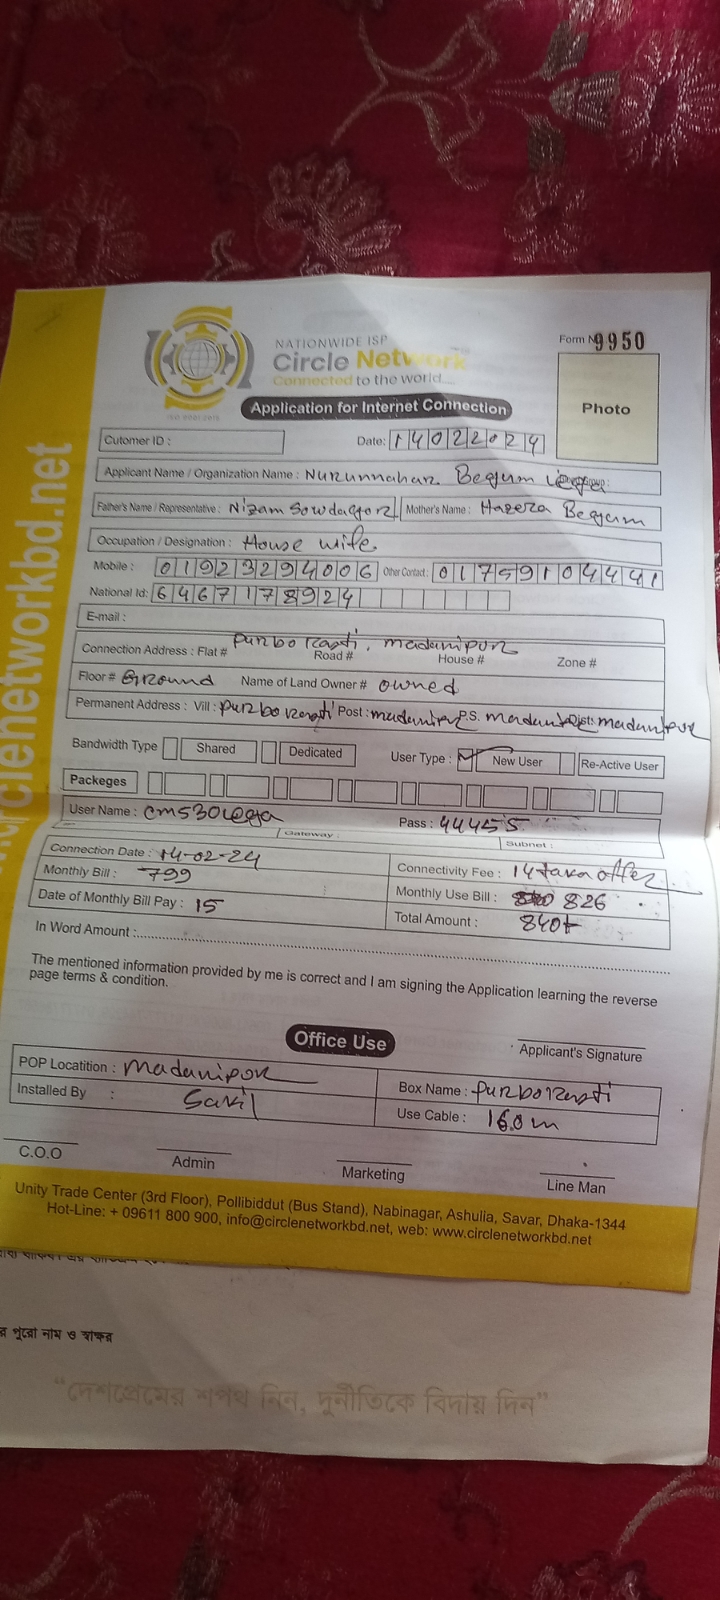 NATIONWIDE ISP
Circle Network
Connected to the world....
Form N 9950
Photo
Application for Internet Connection
Cutomer ID :
Date: 14022024
Applicant Name / Organization Name : Nurunnahar Begum
Father's Name / Representative : Nizam Sowdagor Mother's Name : Hazera Begum
Occupation / Designation : House wife
Mobile : 01923294006 Other Contact : 01759104441
National Id: 6467178924
E-mail :
Connection Address : Flat # Road # House # Zone #
madaripur
Floor # Ground Name of Land Owner # owned
Permanent Address : Vill : Post : madaripur P.S. madaripur Dist: madaripur
Bandwidth Type Shared Dedicated User Type : New User Re-Active User
Packeges
User Name : Pass : 44455
Gateway : Subnet :
Connection Date : 14-02-24 Connectivity Fee : 14 taka offer
Monthly Bill : 799 Monthly Use Bill : 826
Date of Monthly Bill Pay : 15 Total Amount : 840
In Word Amount :
The mentioned information provided by me is correct and I am signing the Application learning the reverse
page terms & condition.
Office Use
Applicant's Signature
POP Locatition : Madaripur Box Name :
Installed By : Sakil Use Cable : 160m
C.O.O Admin Marketing Line Man
Unity Trade Center (3rd Floor), Pollibiddut (Bus Stand), Nabinagar, Ashulia, Savar, Dhaka-1344
Hot-Line: + 09611 800 900, info@circlenetworkbd.net, web: www.circlenetworkbd.net
circlenetworkbd.net
র পুরো নাম ও স্বাক্ষর
“দেশপ্রেমের শপথ নিন, দুর্নীতিকে বিদায় দিন”